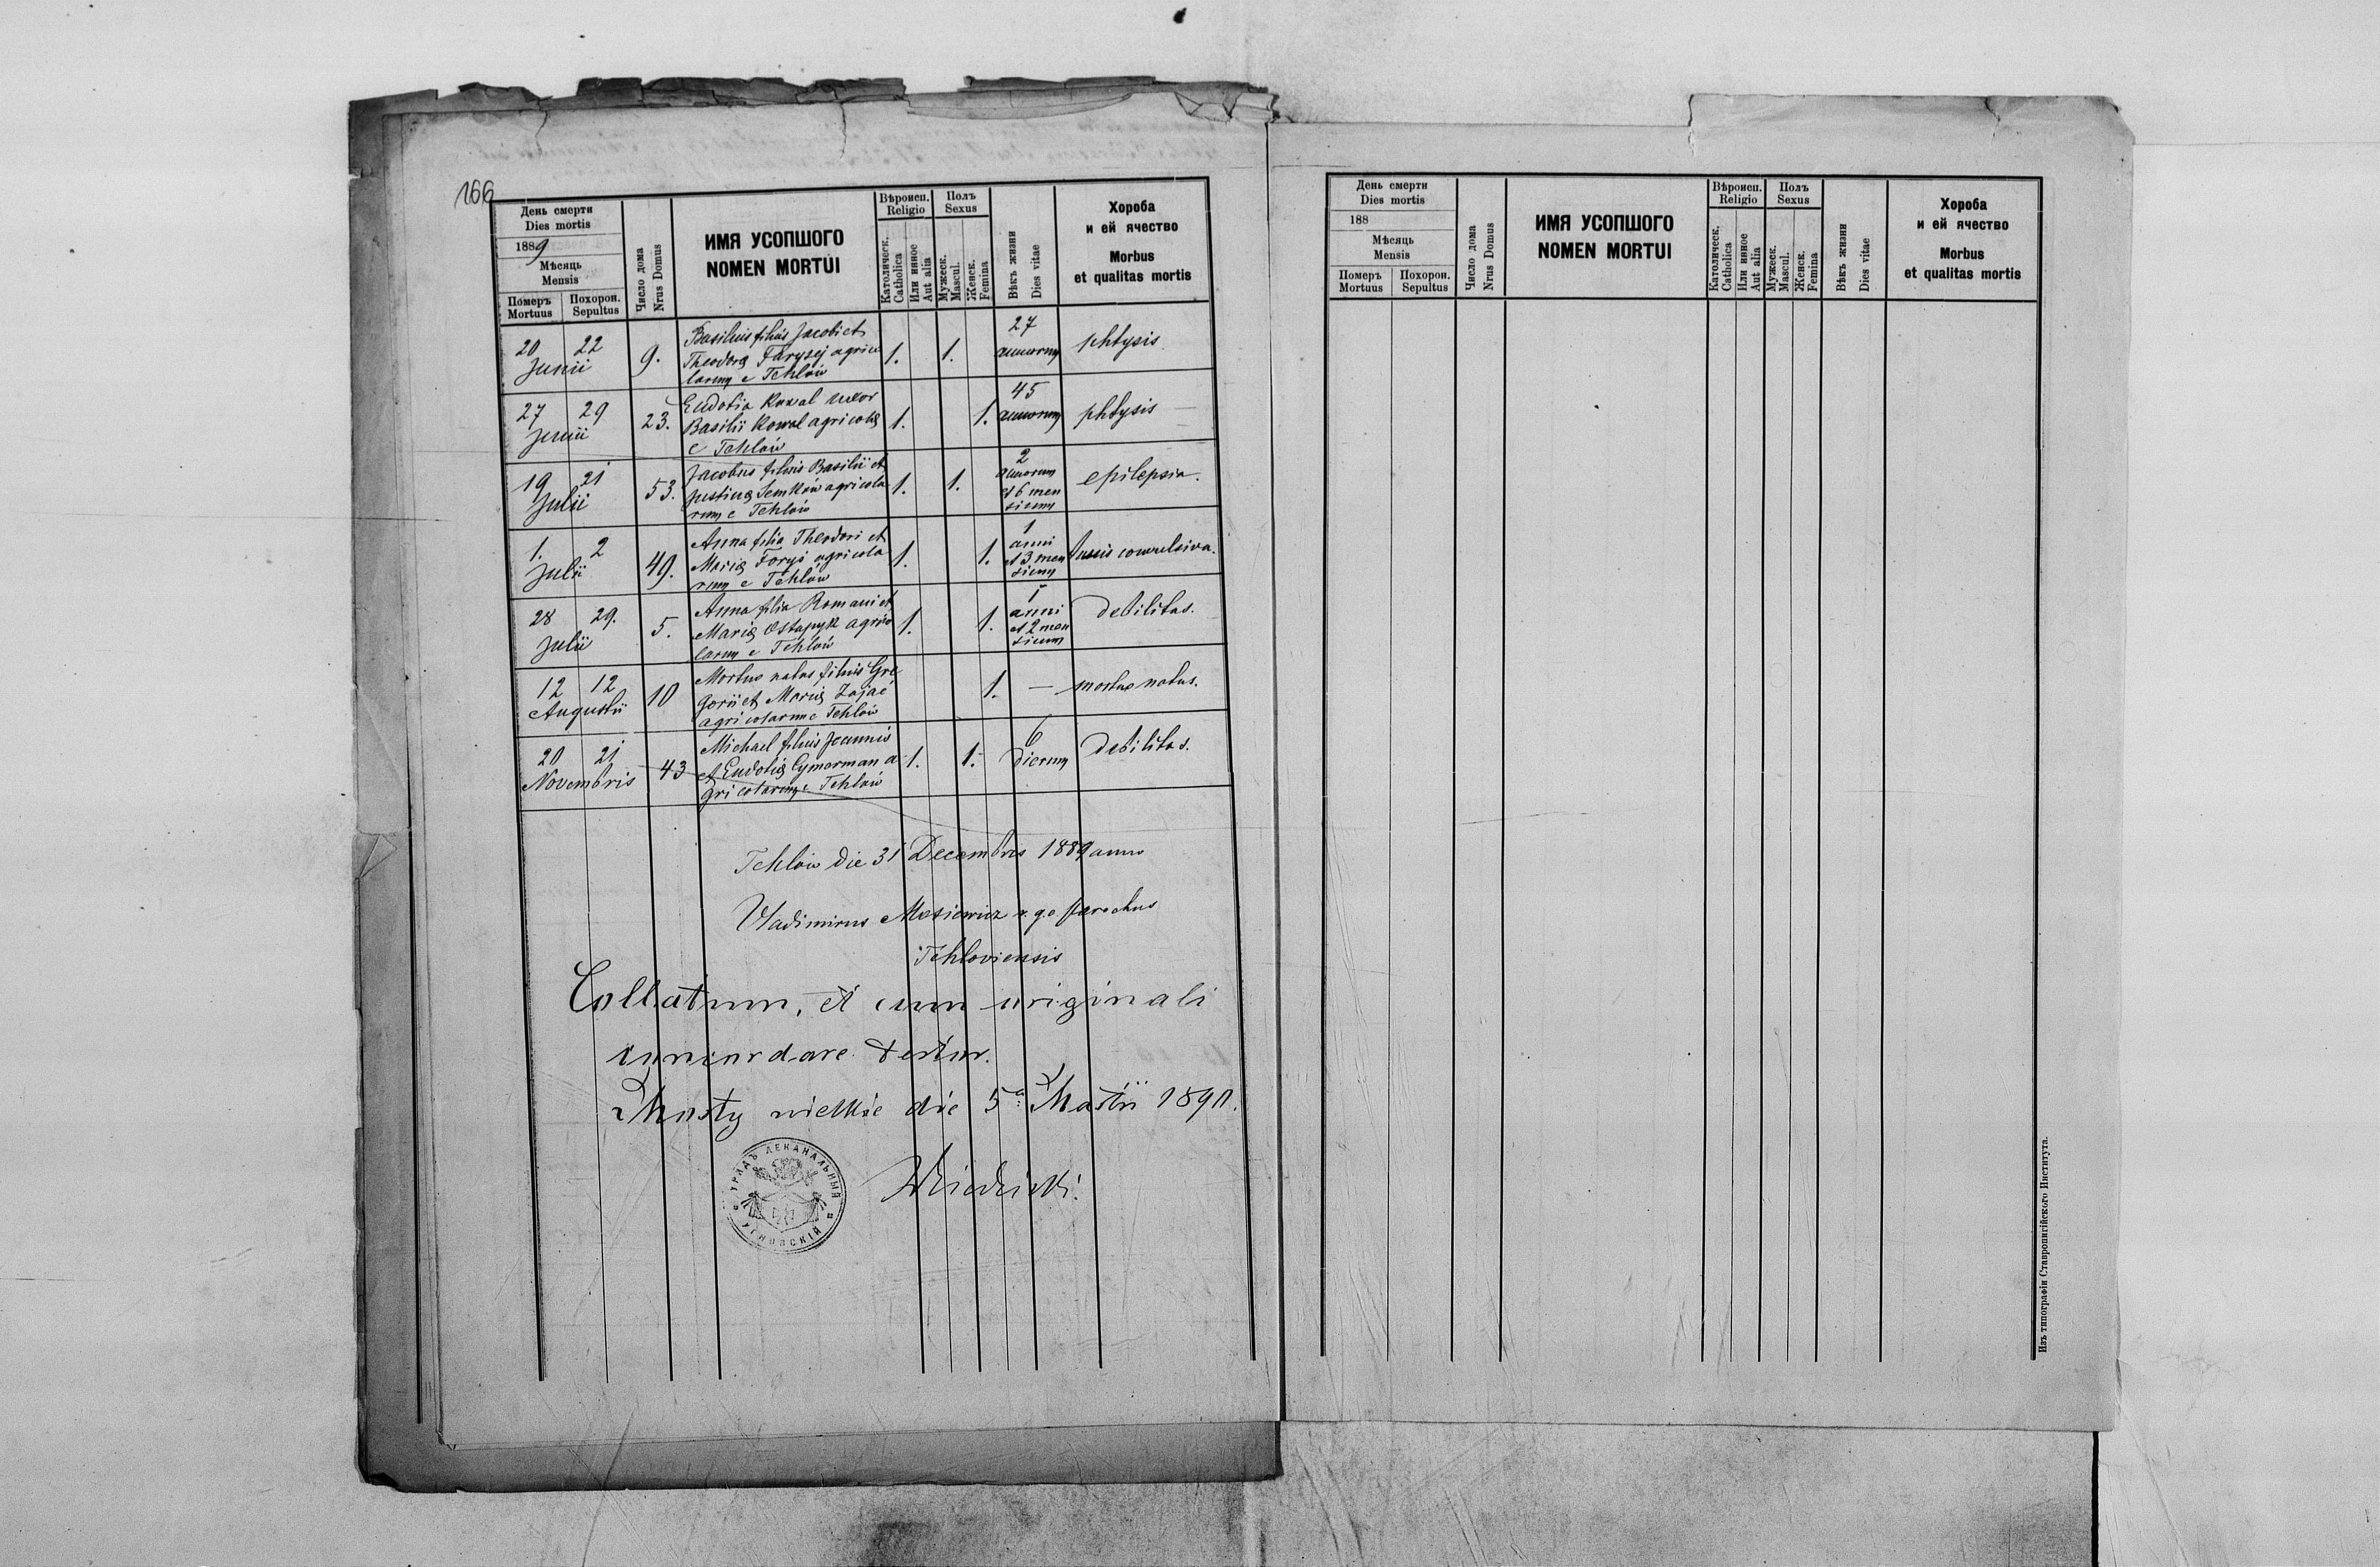 166
День смерти
Dies mortis
1889
Мѣсяць
Mensis
Померъ
Mortuus
Похорон.
Sepultus
Число дома
Nrus Domus
ИМЯ УСОПШОГО
NOMEN MORTUI
Вѣроисп.
Religio
Католическ.
Catholica
Или инное
Aut alia
Полъ
Sexus
Мужеск.
Mascul.
Женск.
Femina
Вѣкъ жизни
Dies vitae
Хороба
и ей ячество
Morbus
et qualitas mortis
20 22
Junii
9.
Basilius filius Jacobi et
Theodoræ Faryzej agrico
larum e Tehlów
1. 1.
27
annorum
phtysis
27 29
Junii
23.
Eudotia Kowal uxor
Basilii Kowal agricolæ
e Tehlów
1. 1.
45
annorum
phtysis
19 21
Julii
53.
Jacobus filius Basilii et
Justinæ Semków agricola
rum e Tehlów
1. 1.
2
annorum
et 6 men
sium
epilepsia.
1. 2
Julii
49.
Anna filia Theodori et
Mariæ Foryś agricola
rum e Tehlów
1. 1.
1
anni
et 3 men
sium
tussis convulsiva.
28 29.
Julii
5.
Anna filia Romani et
Mariæ Ostapyk agrico
larum e Tehlów
1. 1.
1
anni
et 2 men
sium
debilitas.
12 12
Augusti
10
Mortuo natus filius Gre
gorii et Mariæ Zając
agricolarum e Tehlów
1. —
mortuo natus.
20 21
Novembris
43
Michael filius Joannis
et Eudotiæ Cymerman a
gricolarum e Tehlów
1. 1.
6
dierum
debilitas.
Tehlów die 31 Decembris 1889 anno
Vladimirus r. g. c. parochus
Tehloviensis
Collatum, et cum originali
concordare testor.
Mosty wielkie die 5a Martii 1890.
УРЯДЪ ДЕКАНАЛЬНЫЙ
УГНОВСКІЙ
День смерти
Dies mortis
188
Мѣсяць
Mensis
Померъ
Mortuus
Похорон.
Sepultus
Число дома
Nrus Domus
ИМЯ УСОПШОГО
NOMEN MORTUI
Вѣроисп.
Religio
Католическ.
Catholica
Или инное
Aut alia
Полъ
Sexus
Мужеск.
Mascul.
Женск.
Femina
Вѣкъ жизни
Dies vitae
Хороба
и ей ячество
Morbus
et qualitas mortis
Изъ типографіи Ставропигійского Института.